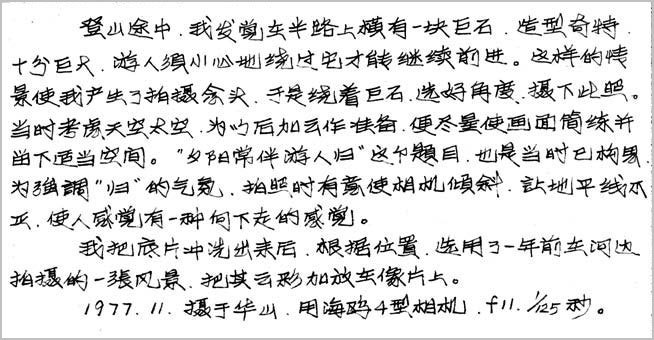 登山途中，我发觉在半路上横有一块巨石，造型奇特，
十分巨大，游人须小心地绕过它才能继续前进。这样的情
景使我产生了拍摄念头，于是绕着巨石，选好角度，摄下此照。
当时考虑天空太空，为以后加云作准备，便尽量使画面简练并
留下适当空间。“夕阳常伴游人归”这个题目，也是当时已构思，
为强調“归”的气氛，拍照时有意使相机倾斜，让地平线不
正，使人感觉有一种向下走的感觉。
我把底片冲洗出来后，根据位置，选用了一年前在河边
拍摄的一張风景，把其云彩加放在像片上。
1977.11.摄于华山，用海鸥4型相机，f11. 1/125秒。